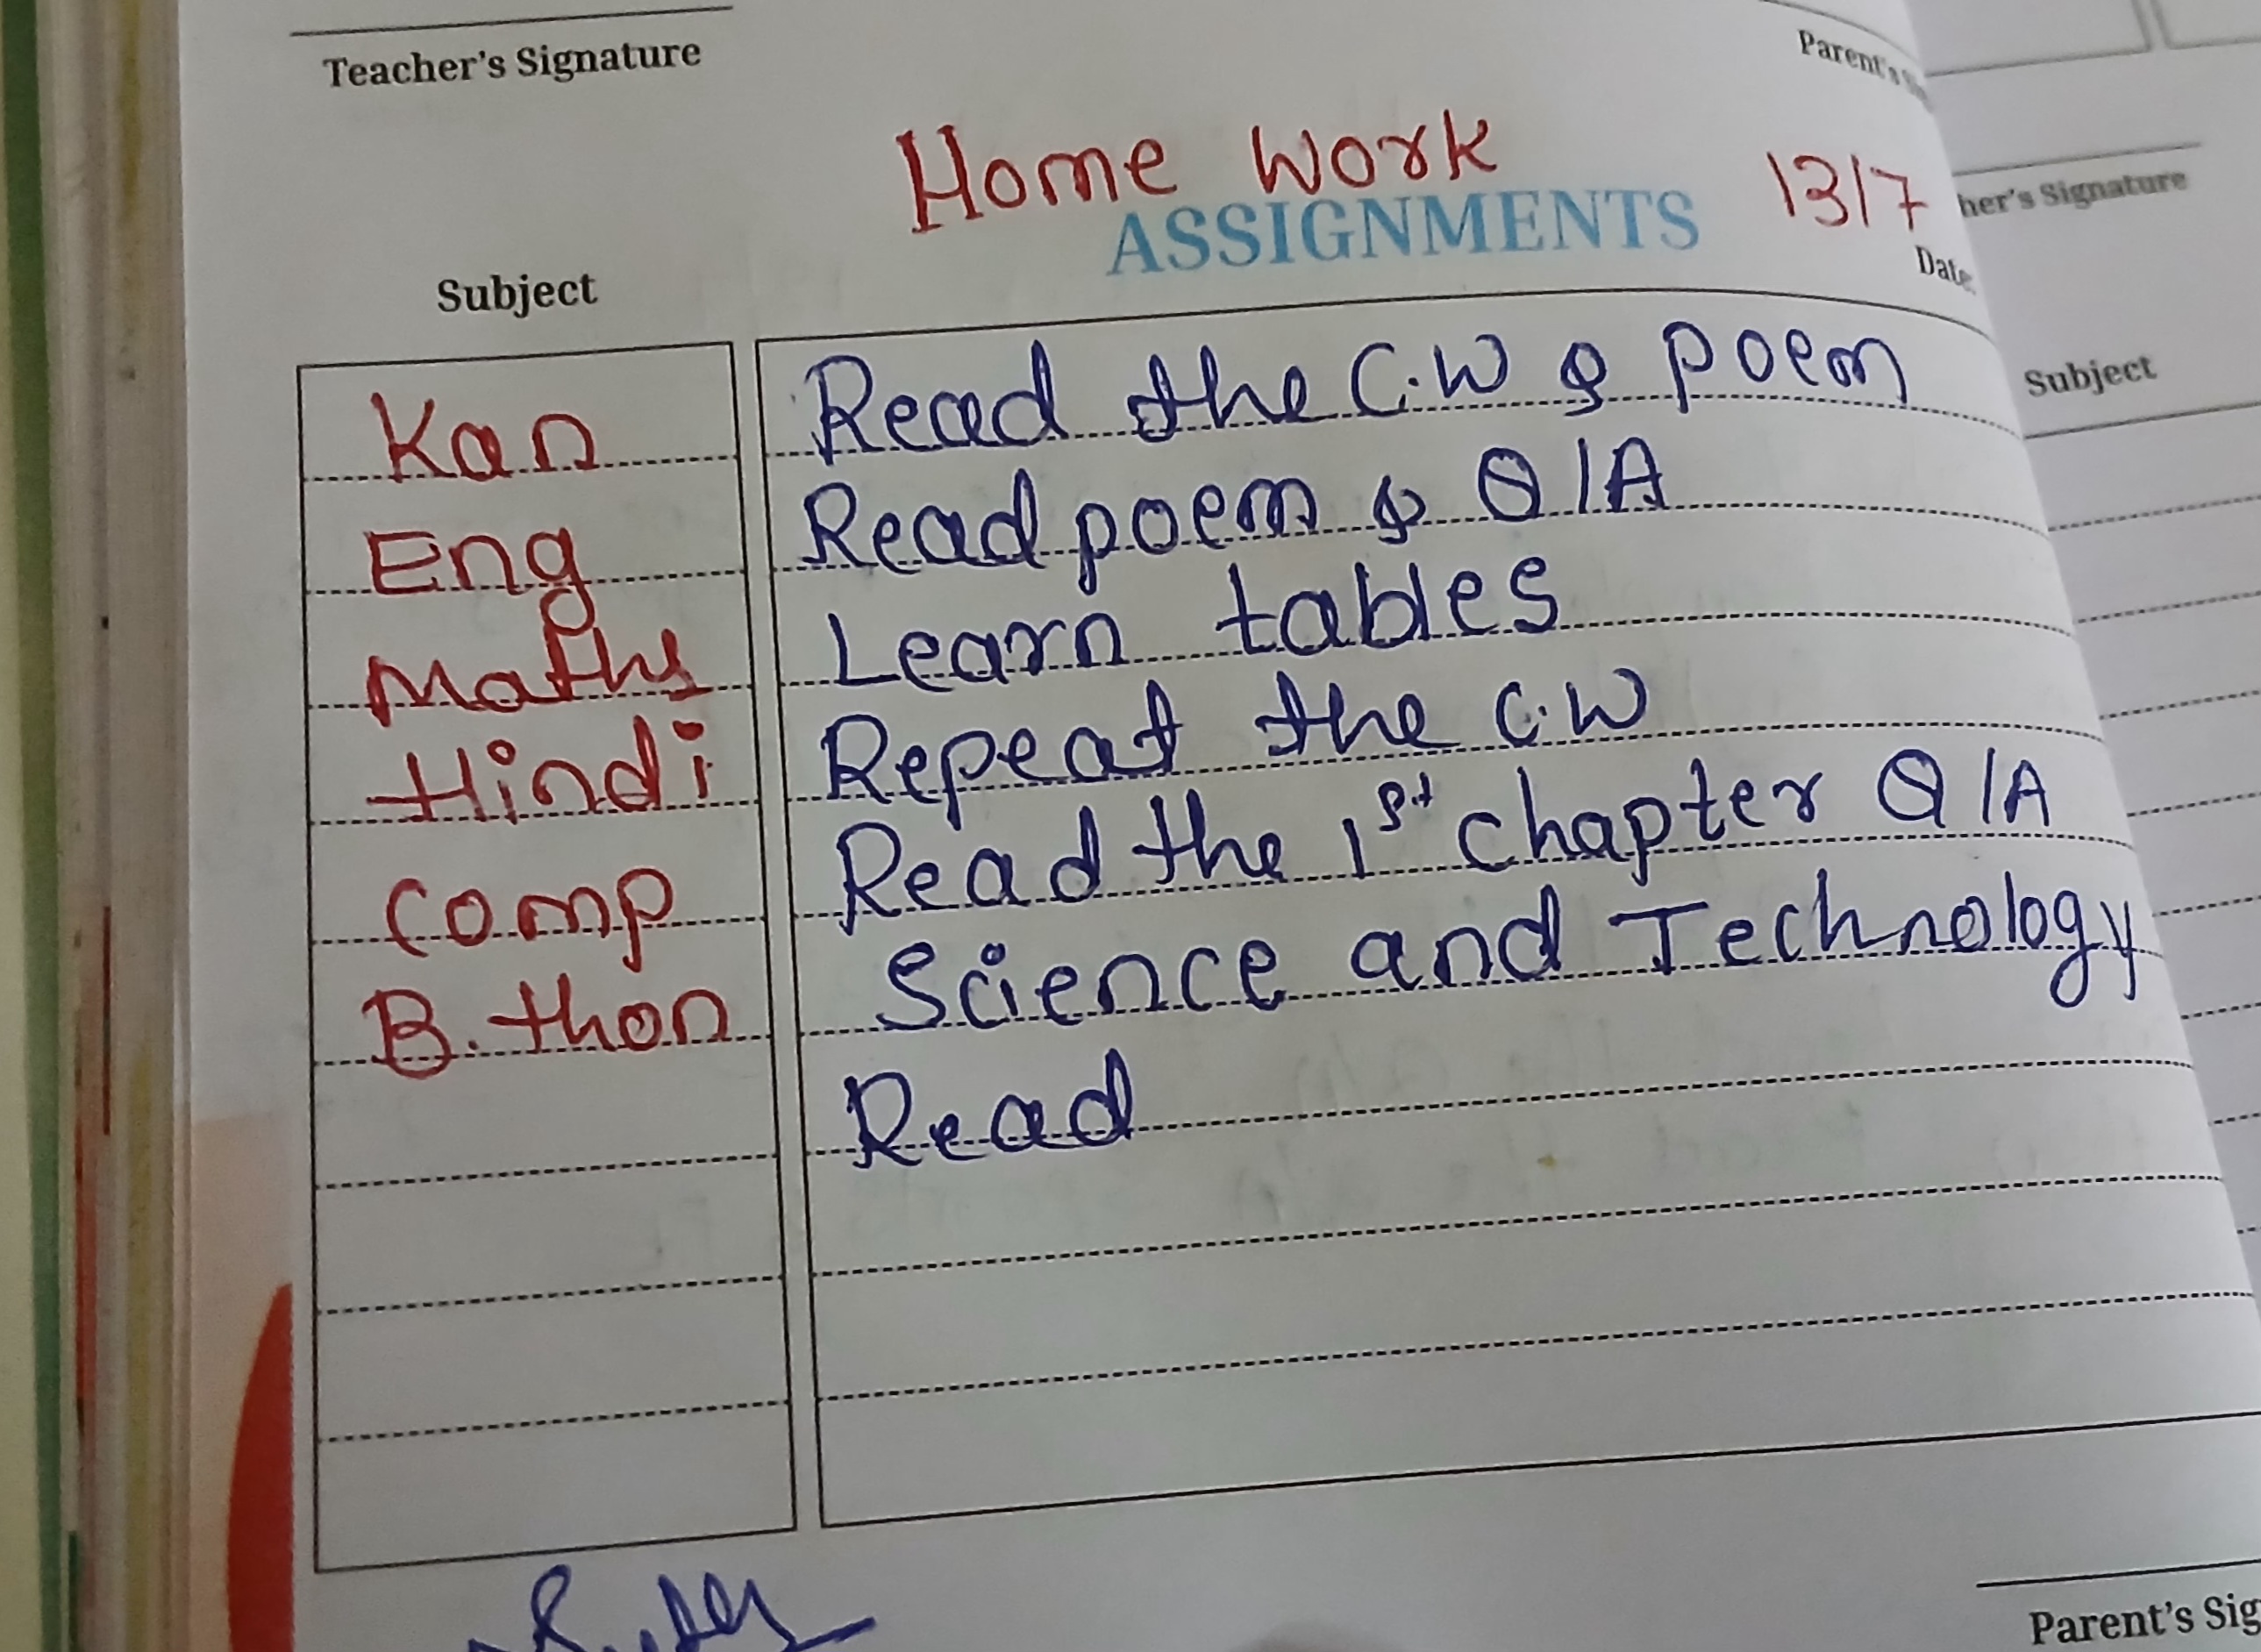 Teacher's Signature
Parent's
Home Work
13/7
her's Signature
ASSIGNMENTS
Date
Subject
Subject
Kan Read the C.W & poem
Eng Read poem & Q/A
Maths Learn tables
Hindi Repeat the C.W
Comp Read the 1st chapter Q/A
B.thon Science and Technology
Read
Parent's Sig